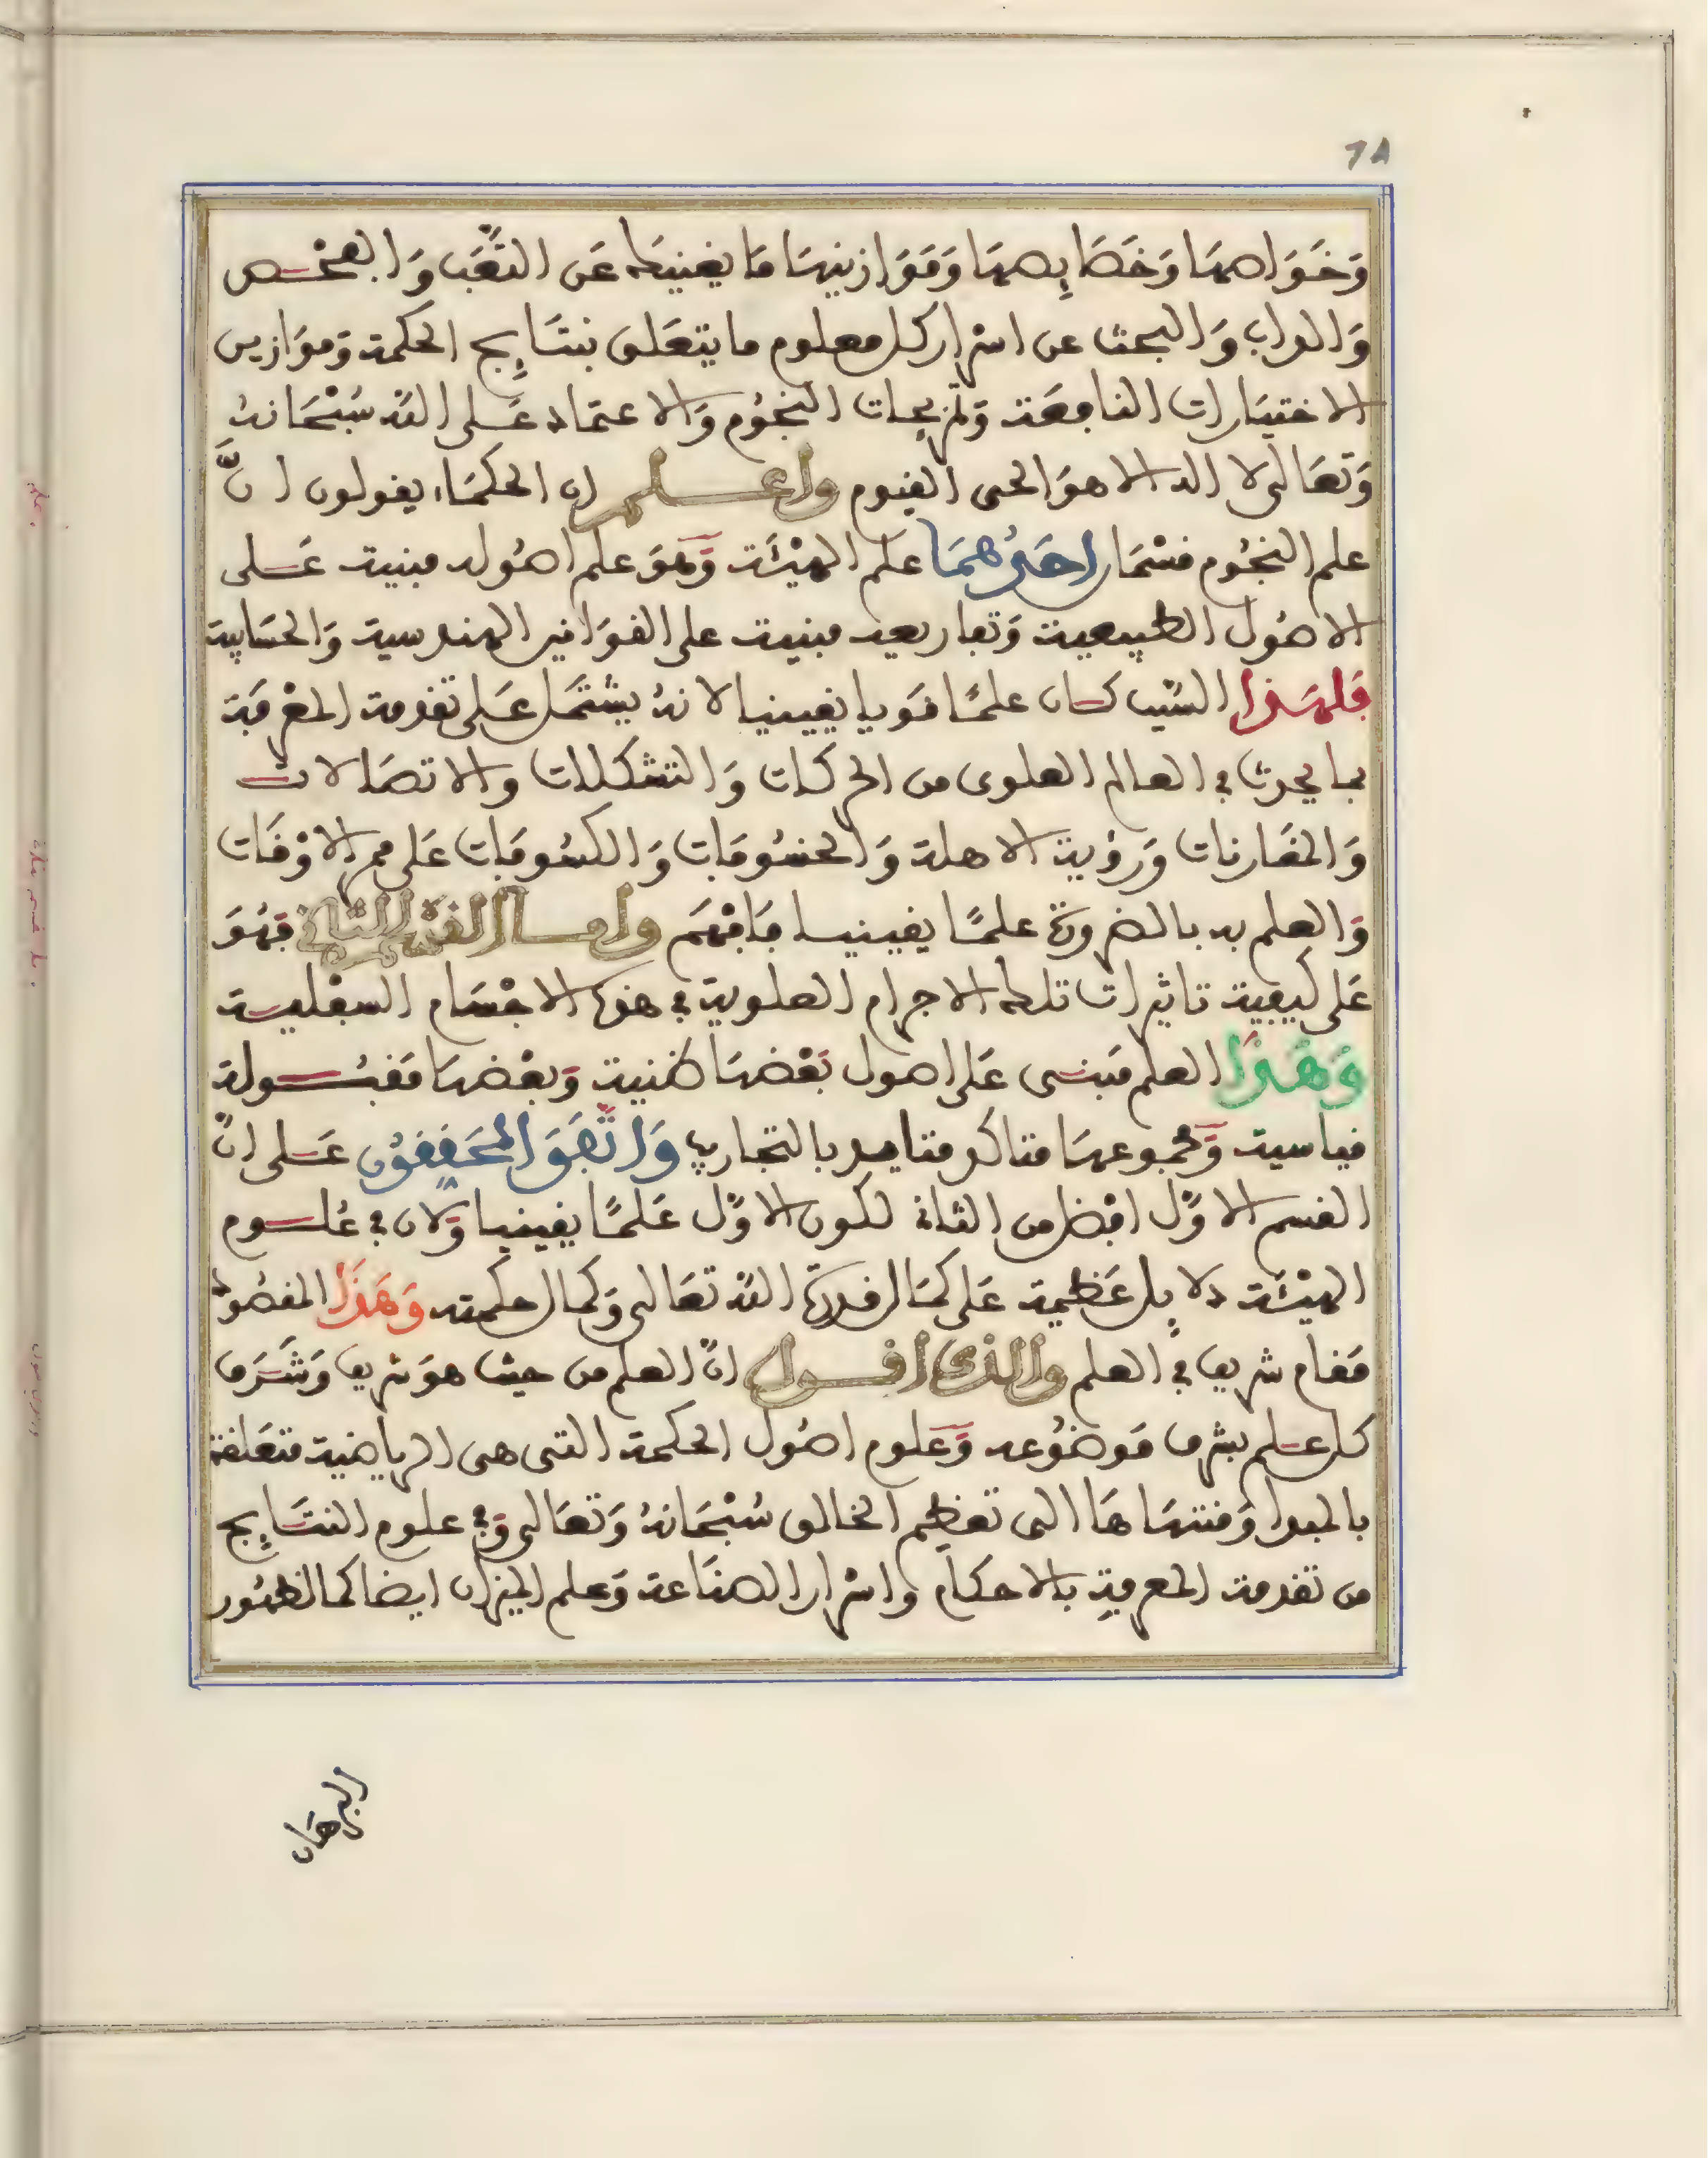 ٦٨
وَخَوَاصهَا وَخَصَايِصهَا وَمَوَازينهَا مَا يغنيك عَن التعَب وَالفحْص
وَالداب وَالبحث عن اسْرار كل معلوم ما يتعَلق بنتَايِج الحكمة وَموَازين
الاختيَارات النافعَة وَتمزيجات النجُوم وَالاعتمَاد عَلى الله سُبْحَانهُ
وَتعَالى لا اله الا هوَ الحى القيوم واعلم ان الحكمَاء يقولون انَّ
علم النجُوم قسْمَان احدُهمَا علم الهيْئَة وَهوَ علم اصُوله مبنية عَلى
الاصُول الطبيعية وَتفاريعه مبنية على القوَانين الهندسية وَالحسَابية
فَلهَذا السّبب كان علمًا قَويا يقينيا لانهُ يشتمَل عَلى تقدمة المعْرفَة
بما يحدث في العالم العلوى من الحركات وَالتشكلات والاتصَالات
وَالمقَارنات وَرؤية الاهلة وَالخسُوفَات وَالكسُوفَات عَلى ممر الاوْقَات
وَالعلم به بالضرورَة علمًا يقينيا فَافْهَم وامّا القسم الثاني فَهُوَ
عَلى كيفية تاثيرات تلك الاجرام العلوية في هذه الاجْسَام السفْلية
وَهَذا العلم مَبنى عَلى اصول بَعْضهَا ظنية وَبعْضهَا مَقبُولة
قياسية وَمجموعهَا متاكد متايد بالتجارب وَاتّفَقَ المحَققوُن عَلى انّ
القسم الاوّل افْضل من الثاني لكون الاوّل عَلمًا يقينيا وَلان في عُلوم
الهيْئَة دلايِل عَظيمة عَلى كمَال قدرَة الله تعَالى وَكمال حكمته وَهَذَا المقصُود
مَقام شريف في العلم والذى اقول انّ العلم من حيث هوَ شريف وَشَرَف
كل علم بشرف مَوضُوعه وَعَلوم اصُول الحكمة التى هى الرياضية متعَلقة
بالمبدا وَمنتهَاهَا الى تعظيم الخالق سُبْحَانهُ وَتعَالى وَفي علوم النتَايِج
من تقدمة المعرفة بالاحكام واسْرار الصنَاعة وَعلم الميزان ايضا كمَا لظهُور
البرهَان